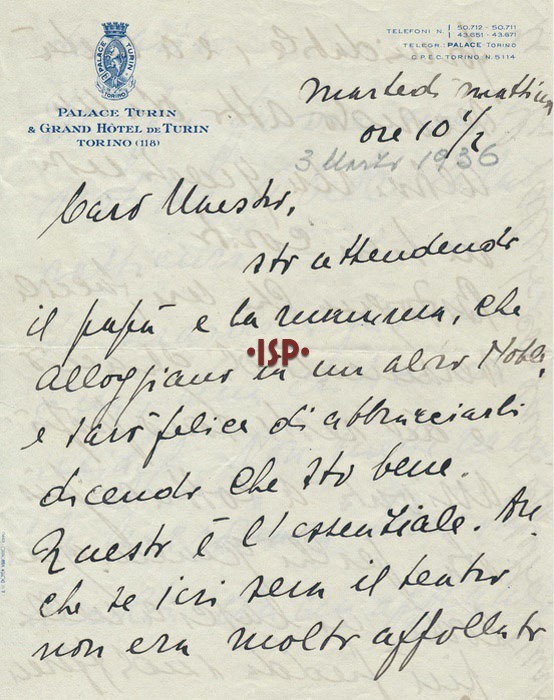 PALACE TURIN
TORINO
TELEFONI N. 50.712 - 50.711
43.651 - 43.671
TELEGR.: PALACE - TORINO
C.P.E.C. TORINO N. 5114
PALACE TURIN
& GRAND HÔTEL DE TURIN
TORINO (118)
Martedì mattina
ore 10 1/2
3 Marzo 1936
Caro Maestro,
sto attendendo
il papà e la mamma, che
alloggiano in un altro Hotel,
e sarò felice di abbracciarli
dicendo che sto bene.
Questo è l'essenziale. An
che se ieri sera il teatro
non era molto affollato
·ISP·